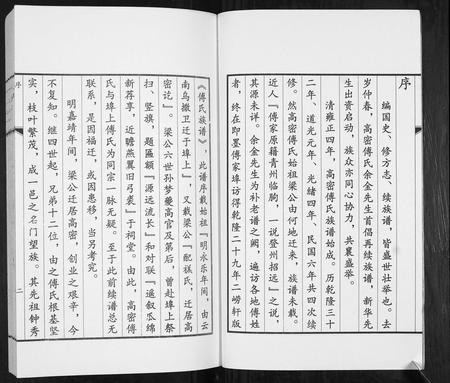 序
编国史、修方志、续族谱，皆盛世壮举也。去
岁仲春，高密傅氏余金先生首倡再续族谱，新华先
生出资启动，族众亦同心协力，共襄盛举。
清雍正四年，高密傅氏族谱始成。历乾隆三十
二年、道光元年、光绪四年、民国六年共四次续
修。然高密傅氏始祖梁公由何地迁来，族谱未载。
近人『傅家原籍青州临朐，一说登州招远』之说，
其源未详。余金先生为补老谱之阙，遍访各地傅姓
者，终在即墨傅家埠访得乾隆二十九年二崂轩版
《傅氏族谱》，此谱序载始祖『明永乐年间，由云
南乌撒卫迁于埠上』，又载梁公『配綦氏，迁居高
密讫』。梁公六世孙梦夔高官及第后，曾赴埠上祭
扫、竖旗，题匾额『源远流长』和对联『遥叙瓜绵
新荐享，近瞻燕翼旧弓裘』于祠堂。由此，高密傅
氏与埠上傅氏为同宗一脉无疑。至于此前续谱总无
联系，是因福迁，或因惠移，当另考究。
明嘉靖年间，梁公迁居高密，创业之艰辛，今
不复知。继四世起，兄弟十二位，由之傅氏根基坚
实，枝叶繁茂，成一邑之名门望族。其先祖钟秀
序
二